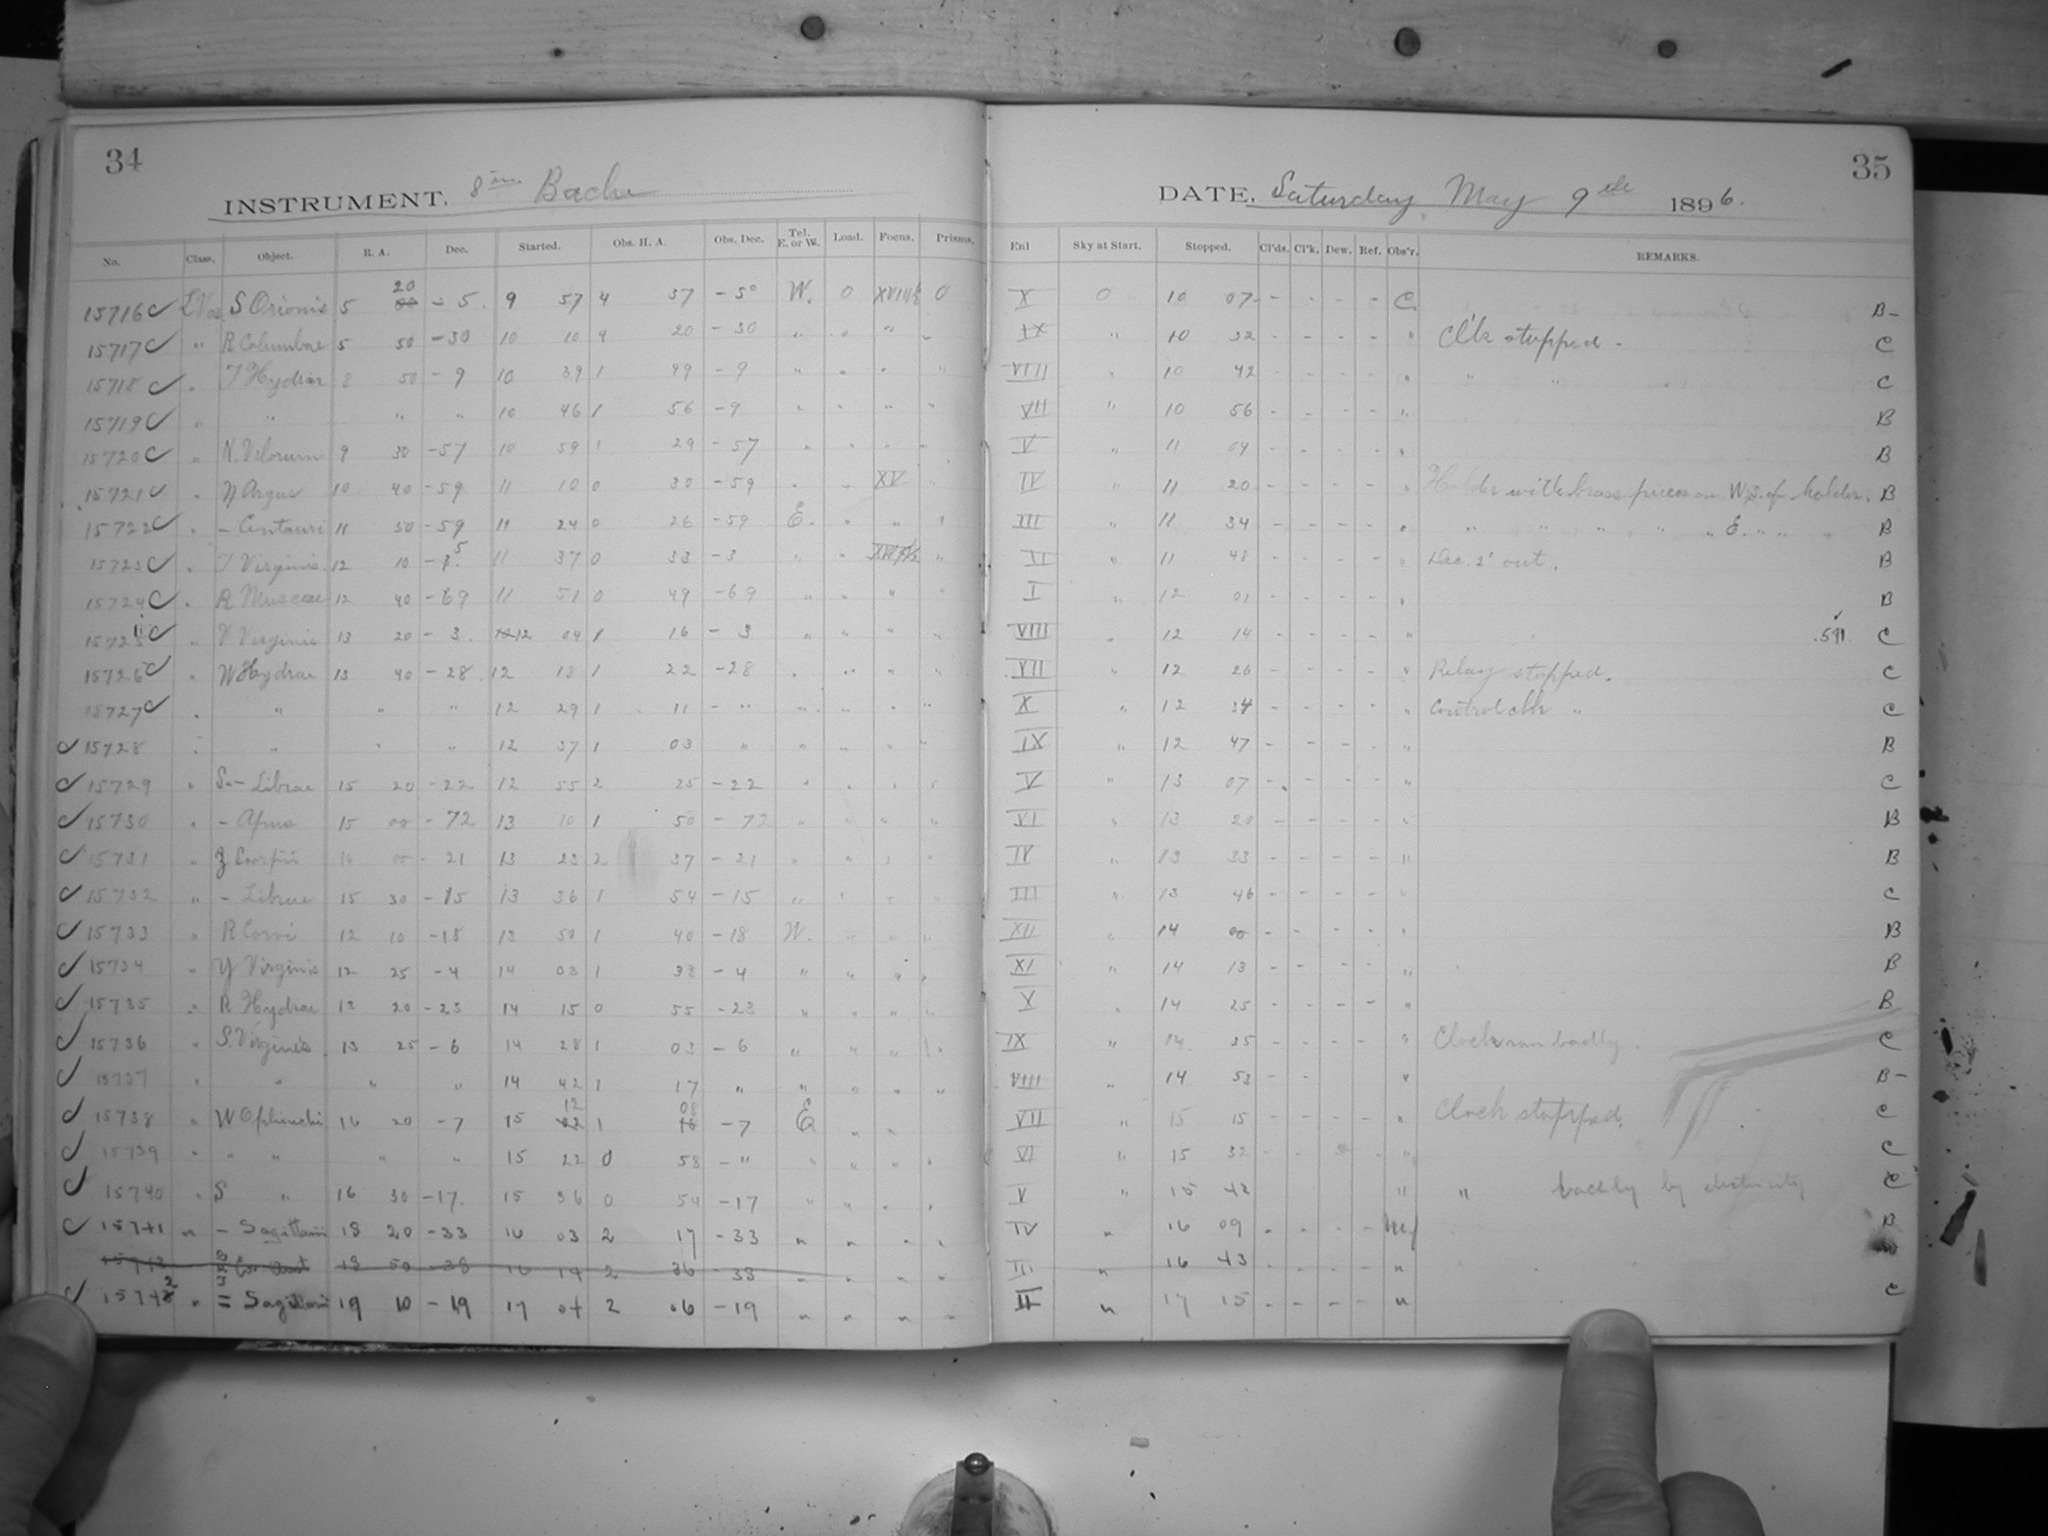 34
INSTRUMENT. 8 in. Bache
No. Class. Object. R. A. Dec. Started. Obs. H. A. Obs. Dec. Tel. E. or W. Load. Focus. Prisms.
15716 S Orionis 5 20 - 5 9 57 4 37 - 5° W. 0 0
15717 " R Columbae 5 50 - 30 10 10 9 20 - 30 " " " "
15718 " T Hydrae 8 50 - 9 10 39 1 49 - 9 " " " "
15719 " " " " 10 46 1 56 - 9 " " " "
15720 " N. Velorum 9 30 - 57 10 59 1 29 - 57 " " " "
15721 " η Argus 10 40 - 59 11 10 0 30 - 59 " " XV "
15722 " - Centauri 11 30 - 59 11 24 0 26 - 59 E. " " "
15723 " T Virginis 12 10 - 5 11 37 0 33 - 3 " " "
15724 " R Muscae 12 40 - 69 11 51 0 49 - 69 " " " "
15725 " V Virginis 13 20 - 3 12 04 1 16 - 3 " " " "
15726 " W Hydrae 13 40 - 28 12 13 1 22 - 28 " " " "
15727 " " " " 12 29 1 11 - " " " " "
15728 " " " " 12 37 1 03 " " " " "
15729 " S - Librae 15 20 - 22 12 55 2 25 - 22 " " " "
15730 " - Apus 15 00 - 72 13 10 1 50 - 72 " " " "
15731 " Z Scorpii 16 00 - 21 13 23 2 37 - 21 " " " "
15732 " - Librae 15 30 - 15 13 36 1 54 - 15 " " " "
15733 " R Corvi 12 10 - 18 13 50 1 40 - 18 W. " " "
15734 " Y Virginis 12 25 - 4 14 03 1 38 - 4 " " " "
15735 " R Hydrae 13 20 - 23 14 15 0 55 - 23 " " " "
15736 " S. Virginis 13 25 - 6 14 28 1 03 - 6 " " " "
15737 " " " " 14 42 1 17 " " " " "
15738 " W Ophiuchi 16 20 - 7 15 12 1 08 - 7 E " "
15739 " " " " " 15 22 0 58 - " " " " "
15740 " S " 16 30 - 17 15 36 0 54 - 17 " " " "
15741 " - Sagittarii 18 20 - 33 16 03 2 17 - 33 " " " "
18 50 - 38 16 14 2 36 - 38 " " " "
15742 " = Sagittarii 19 10 - 19 17 04 2 06 - 19 " " " "
35
DATE. Saturday May 9th 1896.
Enl Sky at Start. Stopped. Cl'ds. Cl'k. Dew. Ref. Obs'r. REMARKS.
X 0 10 07 - - - - C. B -
IX " 10 32 - - - - " Cl'k stopped. C
VIII " 10 42 - - - - " " " C
VII " 10 56 - - - - " B
V " 11 09 - - - - " B
IV " 11 20 - - - - " Holder with brass pieces on W. S. of holder. B
III " 11 34 - - - - " " " " " " E. " " " B
II " 11 48 - - - - " Dec. 2° out. B
I " 12 01 - - - - " B
VIII " 12 14 - - - - " .591 C
VII " 12 26 - - - - " Relay stopped. C
X " 12 34 - - - - " Control clk " C
IX " 12 47 - - - - " B
V " 13 07 - - - - " C
VI " 13 20 - - - - " B
IV " 13 33 - - - - " B
III " 13 46 - - - - " C
XII " 14 00 - - - - " B
XI " 14 13 - - - - " B
X " 14 25 - - - - " B
IX " 14 35 - - - - " Clock run badly. C
VIII " 14 53 - - " B -
VII " 15 15 - - - - " Clock stopped. C
VI " 15 32 - - - " C
V " 15 48 " " badly by electricity C
IV " 16 09 - - - - B
III " 16 43 - - - - "
II " 17 15 - - - - " C